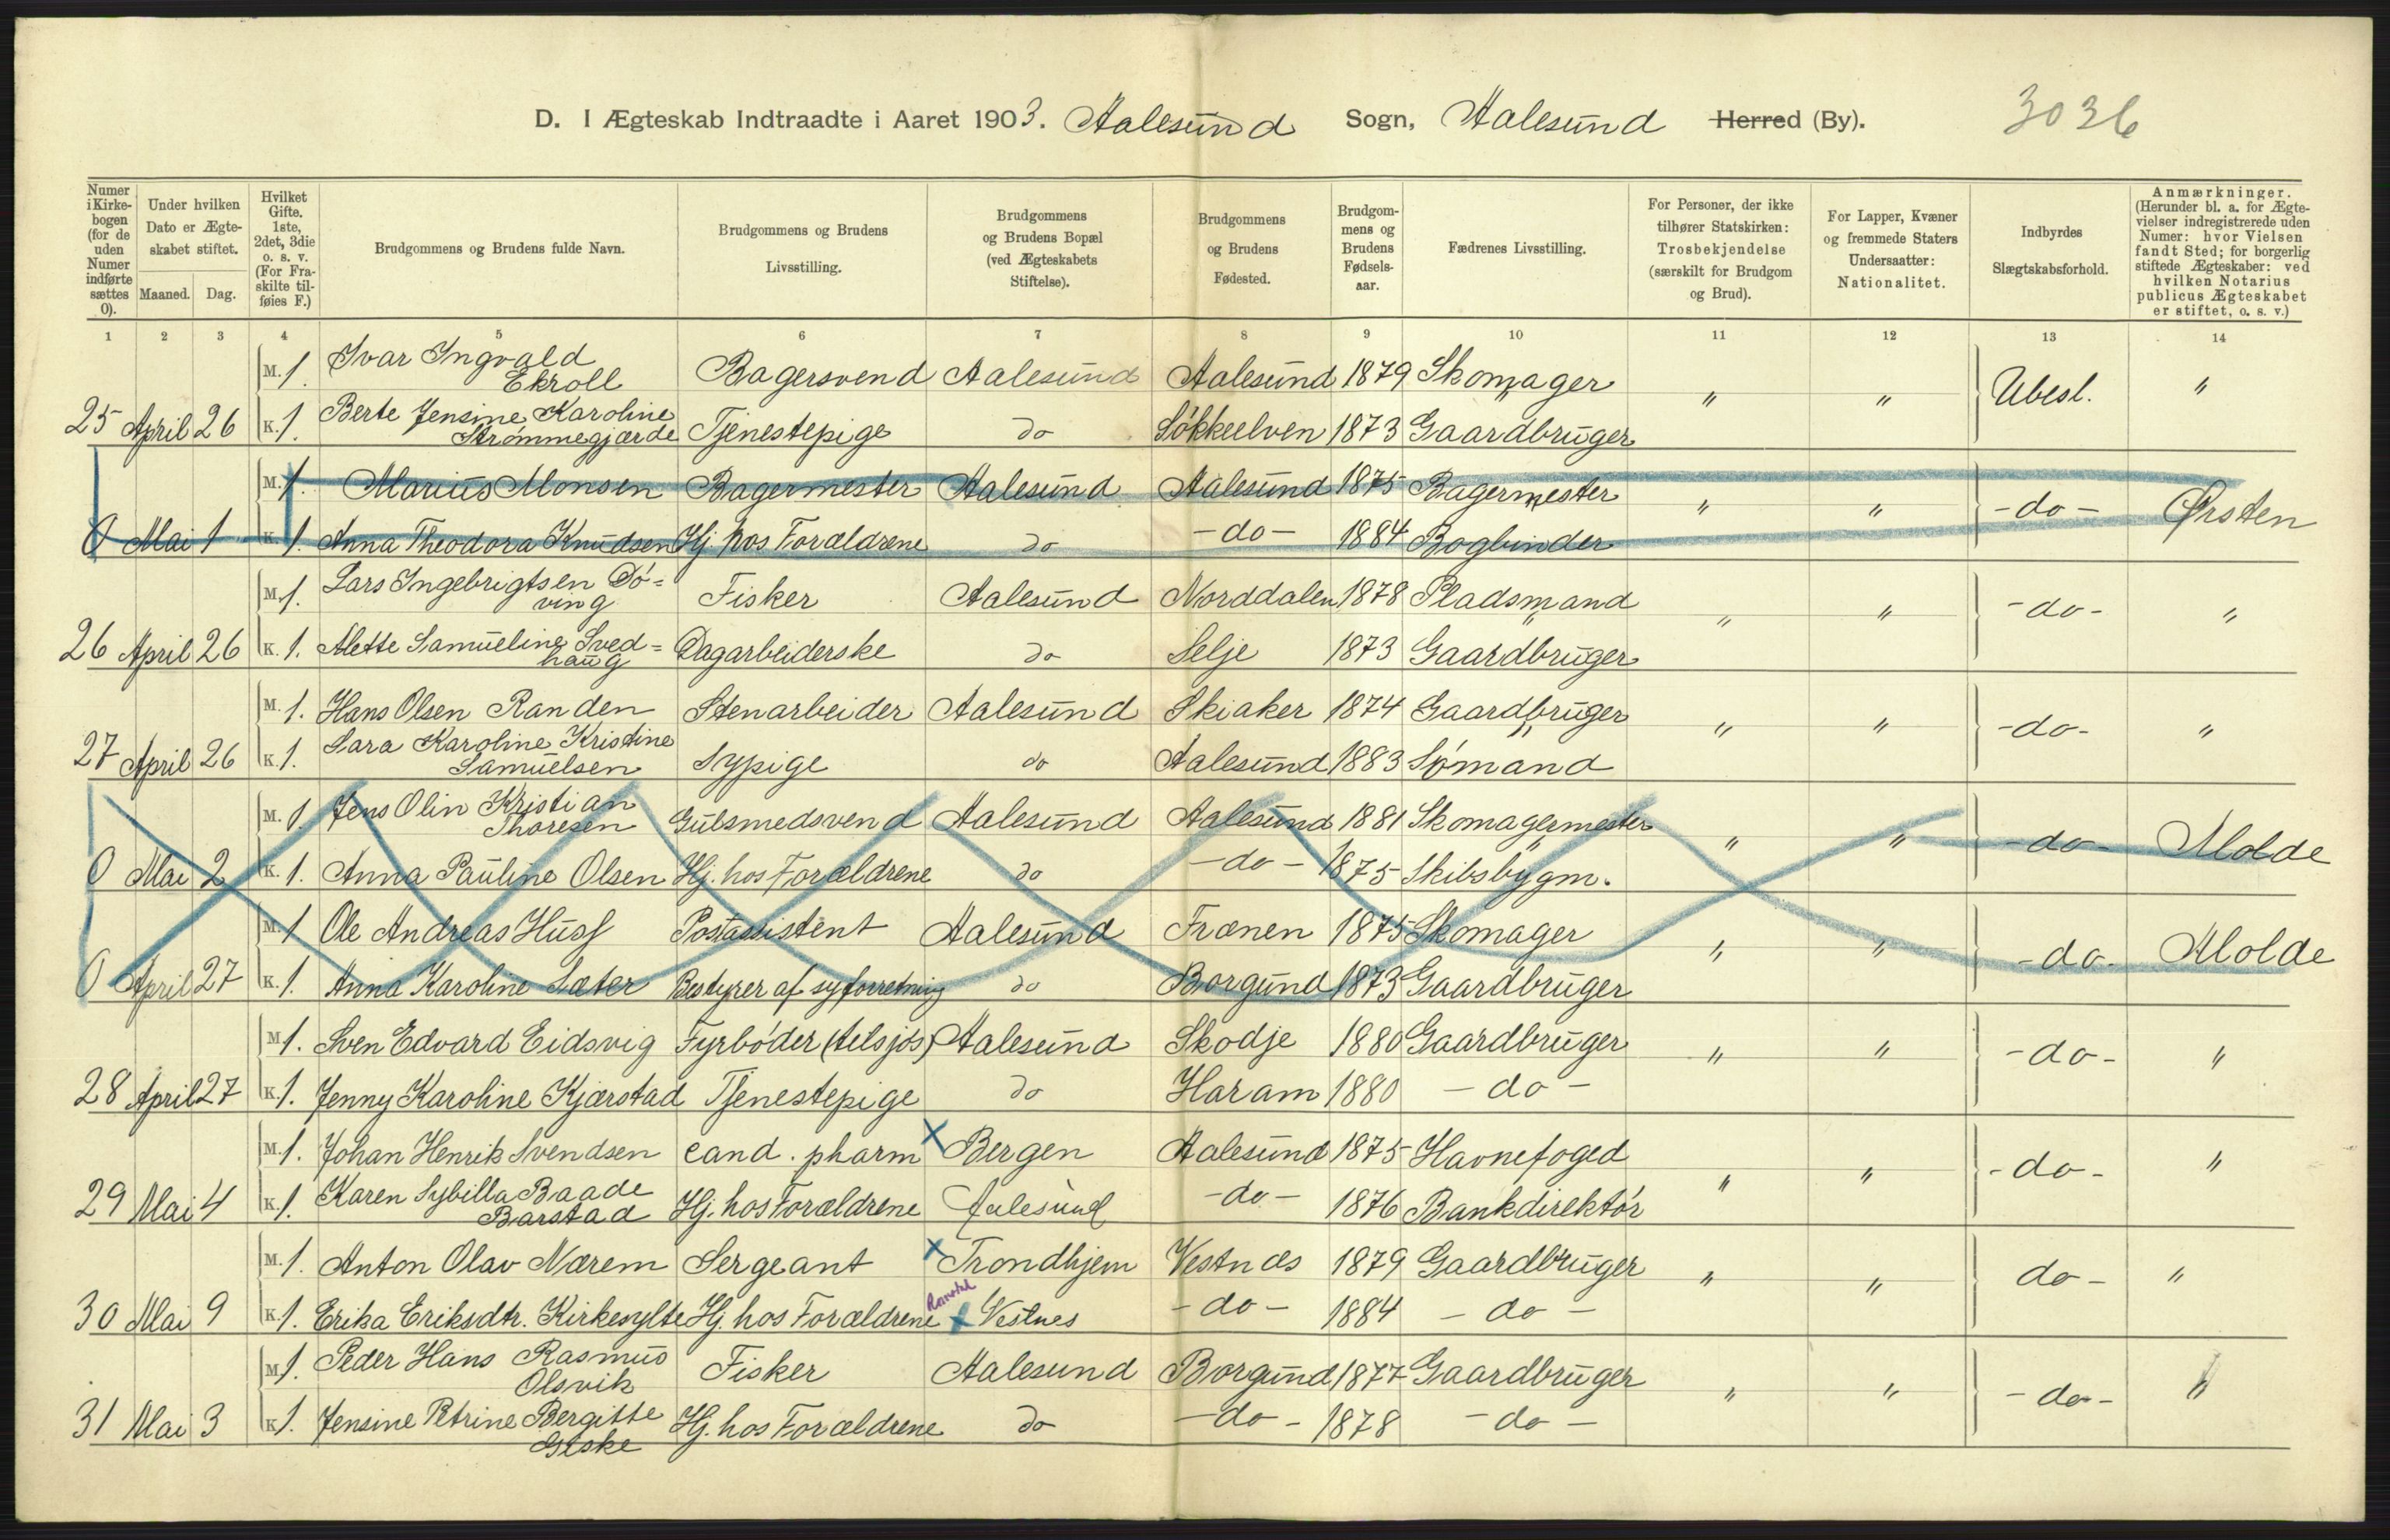 D. I Ægteskab Indtraadte i Aaret 1903. Aalesund Sogn, Aalesund Herred (By). 3036
Numer i Kirkebogen (for de uden Numer indførte sættes 0).
Under hvilken Dato er Ægteskabet stiftet.
Maaned. Dag.
Hvilket Gifte. 1ste, 2det, 3die o. s. v. (For Fraskilte tilføies F.)
Brudgommens og Brudens fulde Navn.
Brudgommens og Brudens Livsstilling.
Brudgommens og Brudens Bopæl (ved Ægteskabets Stiftelse).
Brudgommens og Brudens Fødested.
Brudgommens og Brudens Fødselsaar.
Fædrenes Livsstilling.
For Personer, der ikke tilhører Statskirken: Trosbekjendelse (særskilt for Brudgom og Brud).
For Lapper, Kvæner og fremmede Staters Undersaatter: Nationalitet.
Indbyrdes Slægtskabsforhold.
Anmærkninger. (Herunder bl. a. for Ægtevielser indregistrerede uden Numer: hvor Vielsen fandt Sted; for borgerlig stiftede Ægteskaber: ved hvilken Notarius publicus Ægteskabet er stiftet, o. s. v.)
1 2 3 4 5 6 7 8 9 10 11 12 13 14
M. 1. Ivar Ingvald Ekroll Bagersvend Aalesund Aalesund 1879 Skomager " " Ubesl. "
25 April 26 K. 1. Berte Jensine Karoline Strømmegjærde Tjenestepige do Søkkelven 1873 Gaardbruger
M. 1. Marius Monsen Bagermester Aalesund Aalesund 1875 Bagermester " " -do- Ørsten
0 Mai 1 K. 1. Anna Theodora Knudsen Hj. hos Forældrene do -do- 1884 Bogbinder
M. 1. Lars Ingebrigtsen Dø=ving Fisker Aalesund Norddalen 1878 Pladsmand " " -do- "
26 April 26 K. 1. Alette Samueline Sved=haug Dagarbeiderske do Selje 1873 Gaardbruger
M. 1. Hans Olsen Randen Stenarbeider Aalesund Skiaker 1874 Gaardbruger " " -do- "
27 April 26 K. 1. Sara Karoline Kristine Samuelsen Sypige do Aalesund 1883 Sømand
M. 1. Jens Olin Kristian Thoresen Gulsmedsvend Aalesund Aalesund 1881 Skomagermester " " -do- Molde
0 Mai 2 K. 1. Anna Pauline Olsen Hj. hos Forældrene do -do- 1875 Skibsbygm.
M. 1 Ole Andreas Huss Postassistent Aalesund Frænen 1875 Skomager " " -do- Molde
0 April 27 K. 1. Anna Karoline Sæter Bestyrer af syforretning do Borgund 1873 Gaardbruger
M 1. Sven Edvard Eidsvig Fyrbøder Aalesund Skodje 1880 Gaardbruger " " -do- "
28 April 27 K. 1. Jenny Karoline Kjærstad Tjenestepige do Haram 1880 -do-
M. 1. Johan Henrik Svendsen cand. pharm x Bergen Aalesund 1875 Havnefoged " " -do- "
29 Mai 4 K. 1. Karen Sybilla Baade Barstad Hj. hos Forældrene Aalesund -do- 1876 Bankdirektør
M. 1. Anton Olav Nærem Sergeant x Trondhjem Vestnæs 1879 Gaardbruger " " do- "
30 Mai 9 K 1. Erika Eriksdtr. Kirkesylte Hj. hos Forældrene x Vestnes -do- 1884 -do-
M 1. Peder Hans Rasmus Olsvik Fisker Aalesund Borgund 1877 Gaardbruger " " -do- "
31 Mai 3 K 1. Jensine Petrine Bergitte Giske Hj. hos Forældrene do -do- 1878 -do-